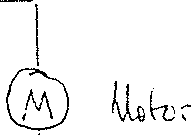 M Motor